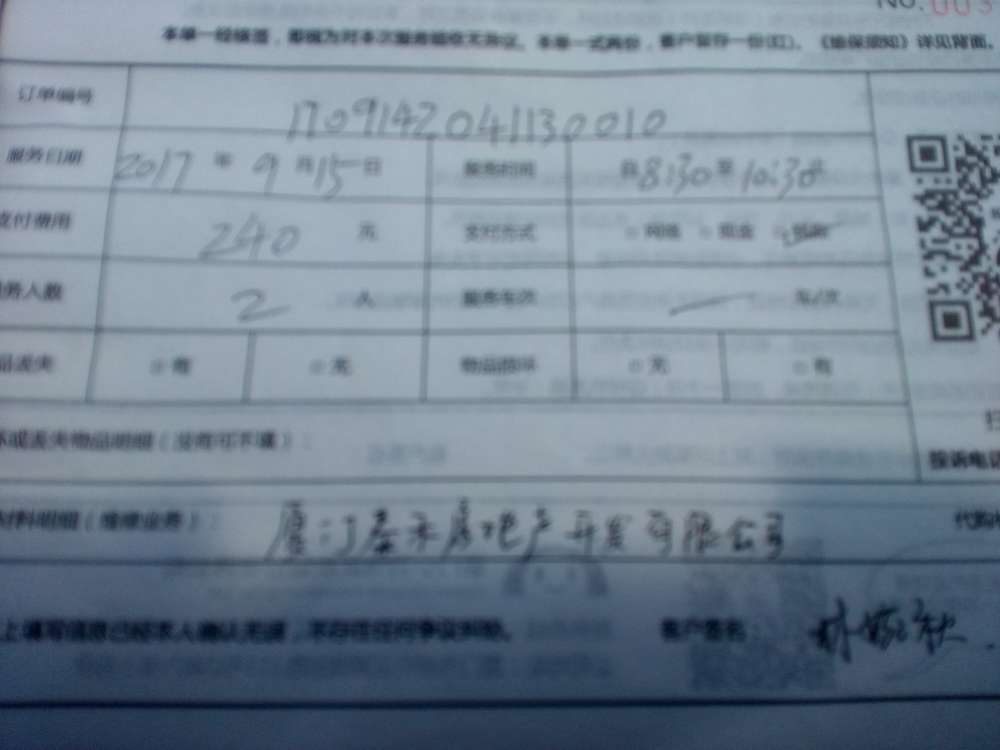 No. 003
本单一经核退，即视为对本次服务验收无异议。本单一式两份，客户留存一份(红)。《维保须知》详见背面。
订单编号 170914204113 0010
服务日期 2017 年 9 月 15 日 服务时间 自 8:30 至 10:30
支付费用 240 元 支付方式
务人数 2 人 服务车次 — 车/次
品丢失 有 无 物品损坏 无 有
坏或丢失物品明细（没有可不填）：
材料明细（维修业务）： 厦门泰禾房地产开发有限公司
投诉电话
上填写信息已经本人确认无误，不存在任何争议纠纷。 客户签名